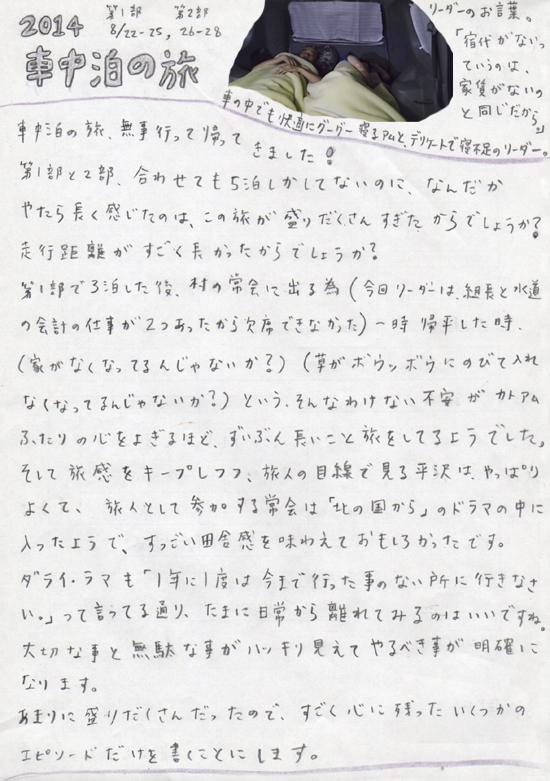 2014
第1部 第2部
8/22-25, 26-28
車中泊の旅
リーダーのお言葉。
「宿代がないっ
ていうのは、
家賃がないの
と同じだから。」
車の中でも快適にグーグー寝るAmと、デリケートで寝不足のリーダー。
車中泊の旅、無事行って帰って
きました！
第1部と2部、合わせても5泊しかしてないのに、なんだか
やたら長く感じたのは、この旅が盛りだくさんすぎたからでしょうか？
走行距離がすごく長かったからでしょうか？
第1部で3泊した後、村の常会に出る為(今回リーダーは、組長と水道
の会計の仕事が2つあったから欠席できなかった)一時帰平した時、
(家がなくなってるんじゃないか？)(草がボウボウにのびて入れ
なくなってるんじゃないか？)という、そんなわけない不安がカトアム
ふたりの心をよぎるほど、ずいぶん長いこと旅をしてるようでした。
そして旅感をキープしつつ、旅人の目線で見る平沢は、やっぱり
よくて、旅人として参加する常会は「北の国から」のドラマの中に
入ったようで、すっごい田舎感を味わえておもしろかったです。
ダライ・ラマも「1年に1度は今まで行った事のない所に行きなさ
い。」って言ってる通り、たまに日常から離れてみるのはいいですね。
大切な事と無駄な事がハッキリ見えてやるべき事が明確に
なります。
あまりに盛りだくさんだったので、すごく心に残ったいくつかの
エピソードだけを書くことにします。